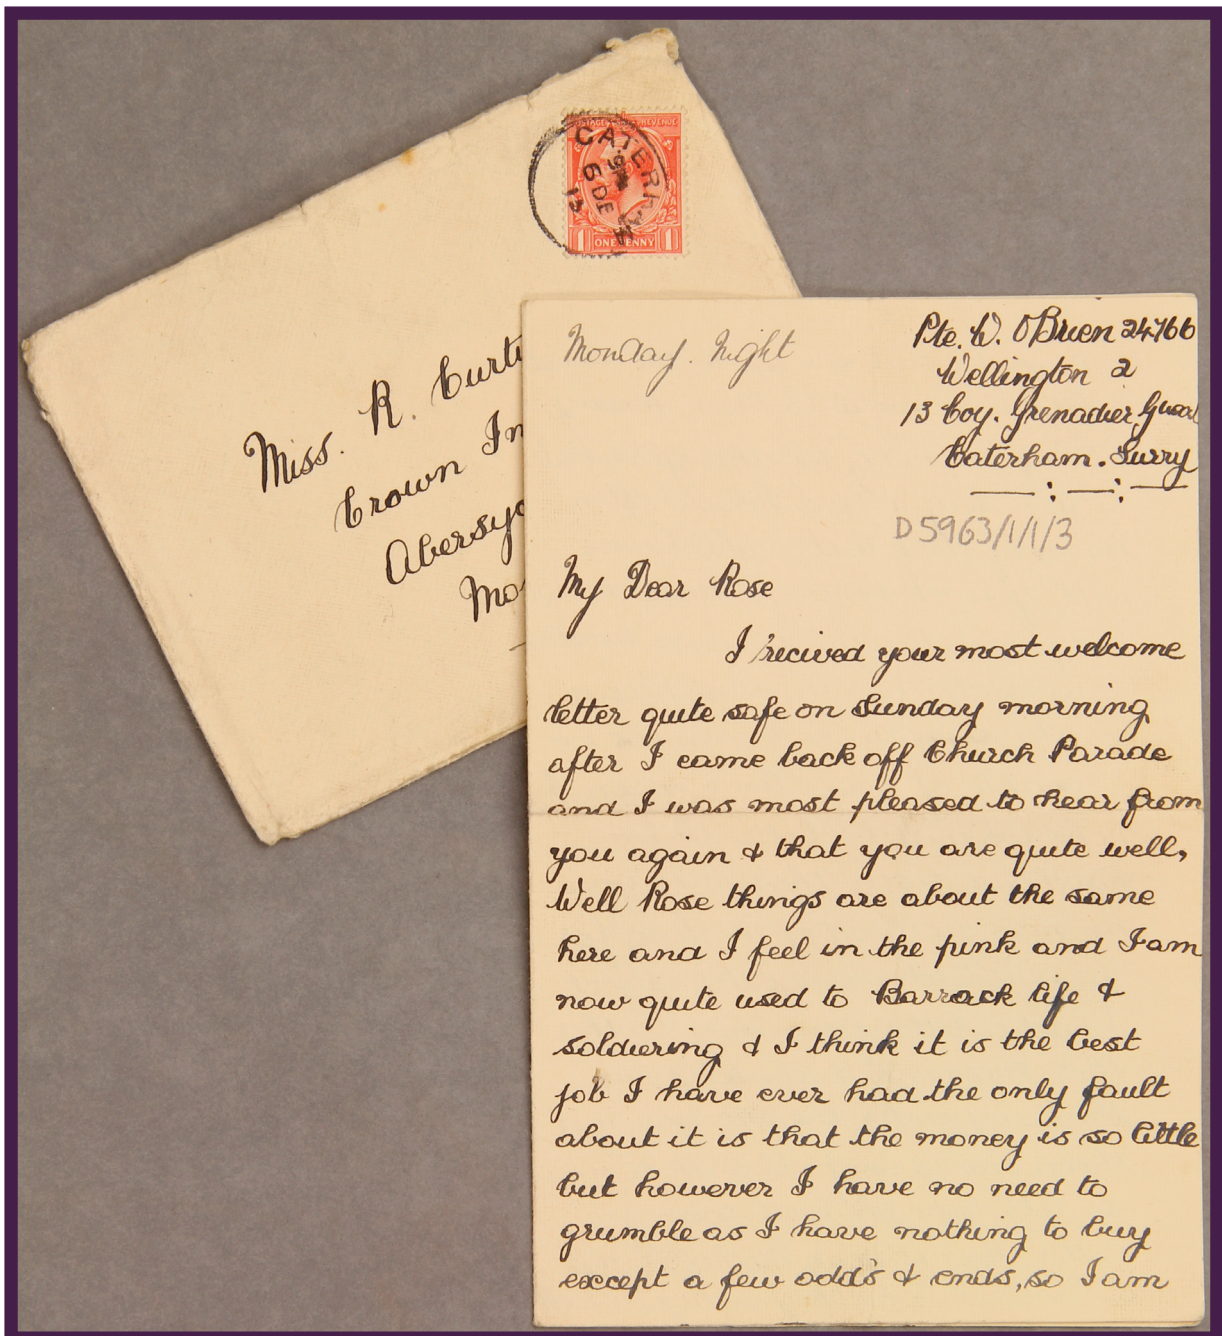 POSTAGE REVENUE
CATERHAM
6 DE
13
1 ONE PENNY 1
Miss. R. Curti
Crown In
Abersyc
Mo
Monday. Night
Pte. W. O'Brien 24766
Wellington 2
13 Coy. Grenadier Guard
Caterham. Surry
D5963/1/1/3
My Dear Rose
I recived your most welcome
letter quite safe on Sunday morning
after I came back off Church Parade
and I was most pleased to hear from
you again & that you are quite well,
Well Rose things are about the same
here and I feel in the pink and I am
now quite used to Barrack life &
soldiering & I think it is the best
job I have ever had the only fault
about it is that the money is so little
but however I have no need to
grumble as I have nothing to buy
except a few odd's & ends, so I am